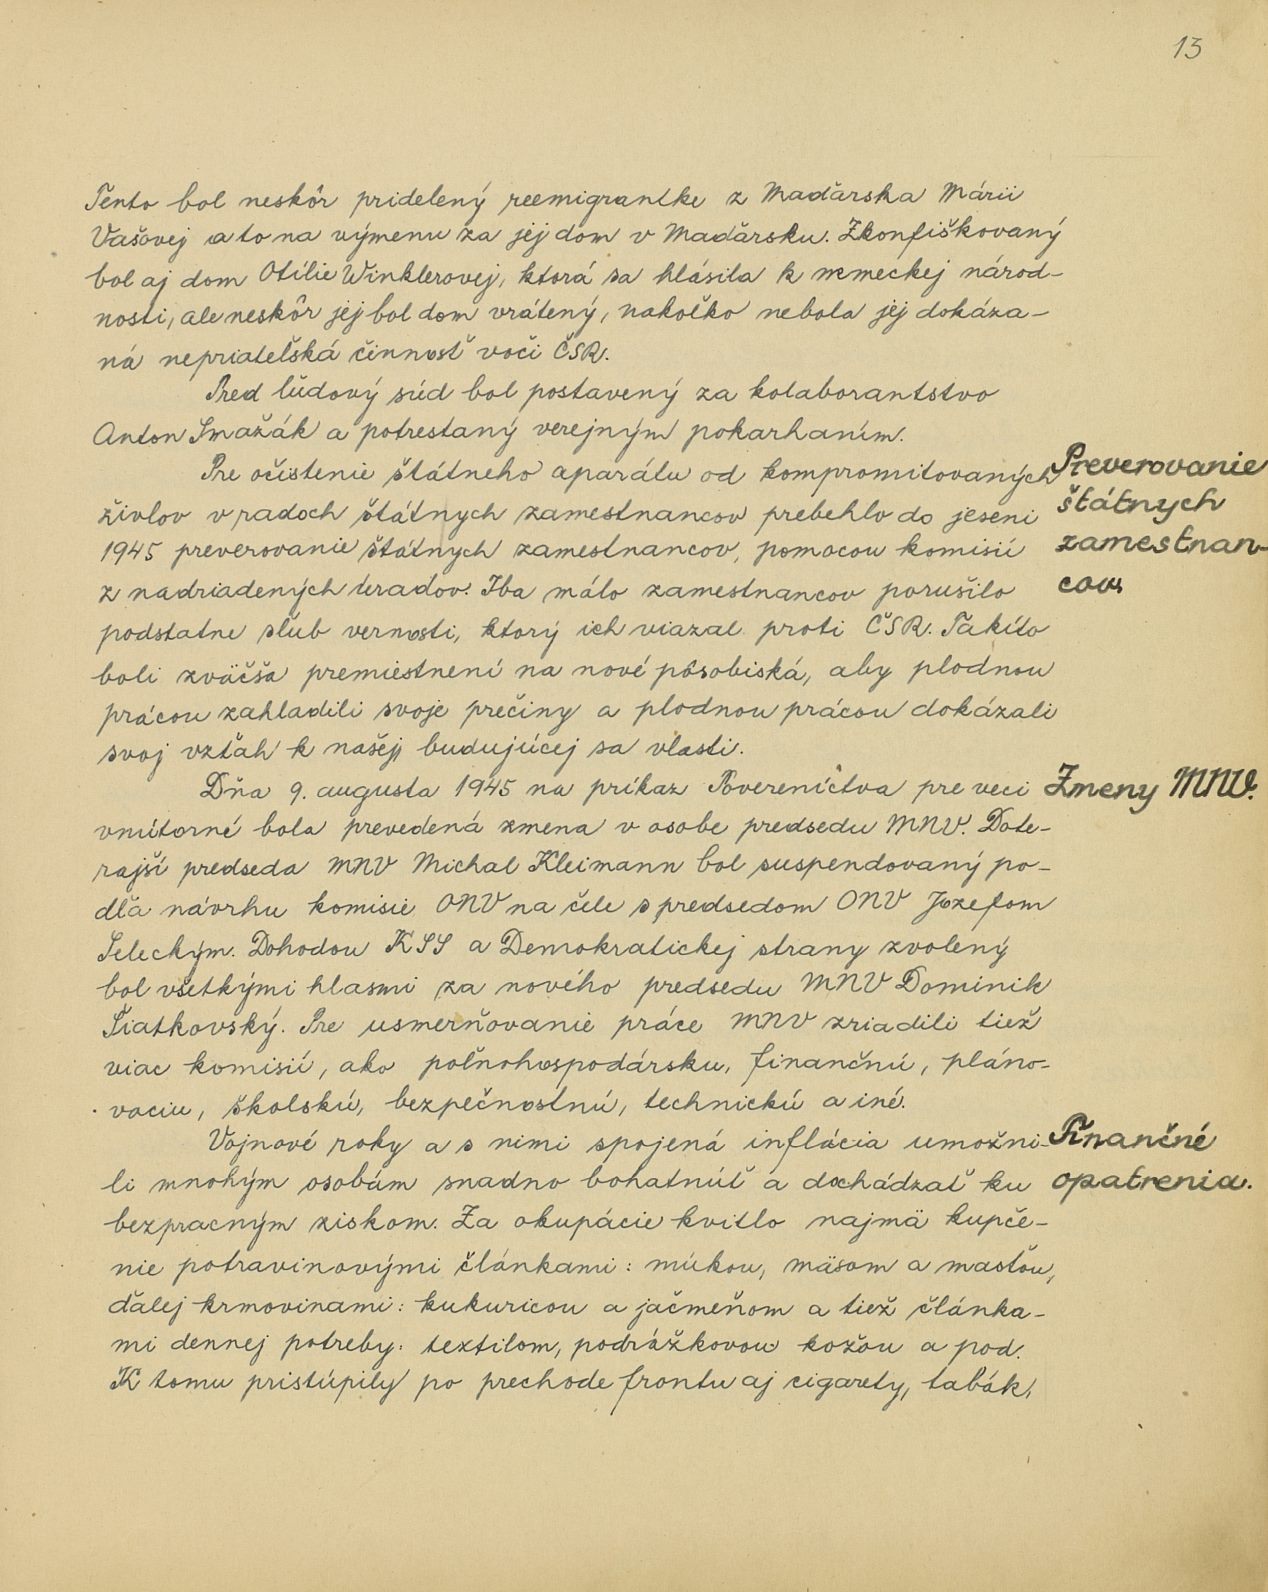 13
Tento bol neskôr pridelený reemigrantke z Maďarska Márii
Vašovej a to na výmenu za jej dom v Maďarsku. Zkonfiškovaný
bol aj dom Otílie Winklerovej, ktorá sa hlásila k nemeckej národ-
nosti, ale neskôr jej bol dom vrátený, nakoľko nebola jej dokáza-
ná nepriateľská činnosť voči ČSR.
Pred ľudový súd bol postavený za kolaborantstvo
Anton Smažák a potrestaný verejným pokarhaním.
Pre očistenie štátneho aparátu od kompromitovaných
živlov v radoch štátnych zamestnancov prebehlo do jeseni
1945 preverovanie štátnych zamestnancov, pomocou komisií
z nadriadených úradov. Iba málo zamestnancov porušilo
podstatne sľub vernosti, ktorý ich viazal proti ČSR. Takíto
boli zväčša premiestnení na nové pôsobiská, aby plodnou
prácou zahladili svoje prečiny a plodnou prácou dokázali
svoj vzťah k našej budujúcej sa vlasti.
Preverovanie
štátnych
zamestnan-
cov.
Dňa 9. augusta 1945 na príkaz Povereníctva pre veci
vnútorné bola prevedená zmena v osobe predsedu MNV. Dote-
rajší predseda MNV Michal Kleimann bol suspendovaný po-
dľa návrhu komisie ONV na čele s predsedom ONV Jozefom
Seleckým. Dohodou KSS a Demokratickej strany zvolený
bol všetkými hlasmi za nového predsedu MNV Dominik
Šiatkovský. Pre usmerňovanie práce MNV zriadili tiež
viac komisií, ako poľnohospodársku, finančnú, pláno-
vaciu, školskú, bezpečnostnú, technickú a iné.
Zmeny MNV.
Vojnové roky a s nimi spojená inflácia umožni-
li mnohým osobám snadno bohatnúť a dochádzať ku
bezpracným ziskom. Za okupácie kvitlo najmä kupče-
nie potravinovými článkami: múkou, mäsom a masťou,
ďalej krmovinami: kukuricou a jačmeňom a tiež člán­ka-
mi dennej potreby: textilom, podrážkovou kožou a pod.
K tomu pristúpily po prechode frontu aj cigarety, tabák,
Finančné
opatrenia.